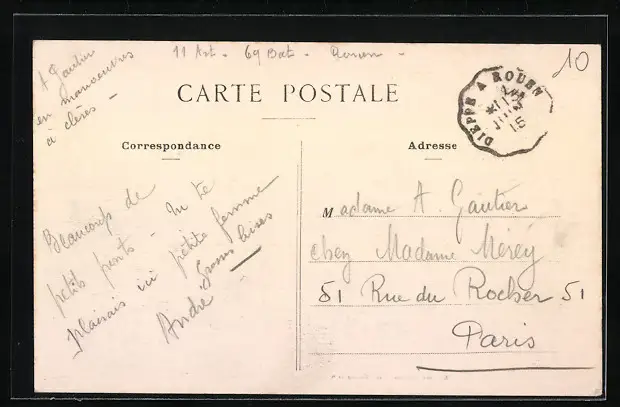 A Gautier
en manoeuvres
à clères -
11 Art - 69 Bat - Rouen -
10
CARTE POSTALE
DIEPPE A ROUEN
15
Correspondance
Adresse
Beaucoup de
petits ponts - Tu te
plairais ici petite femme
Grosses bises
André
Madame A. Gautier
chez Madame Mérey
51 Rue du Rocher 51
Paris